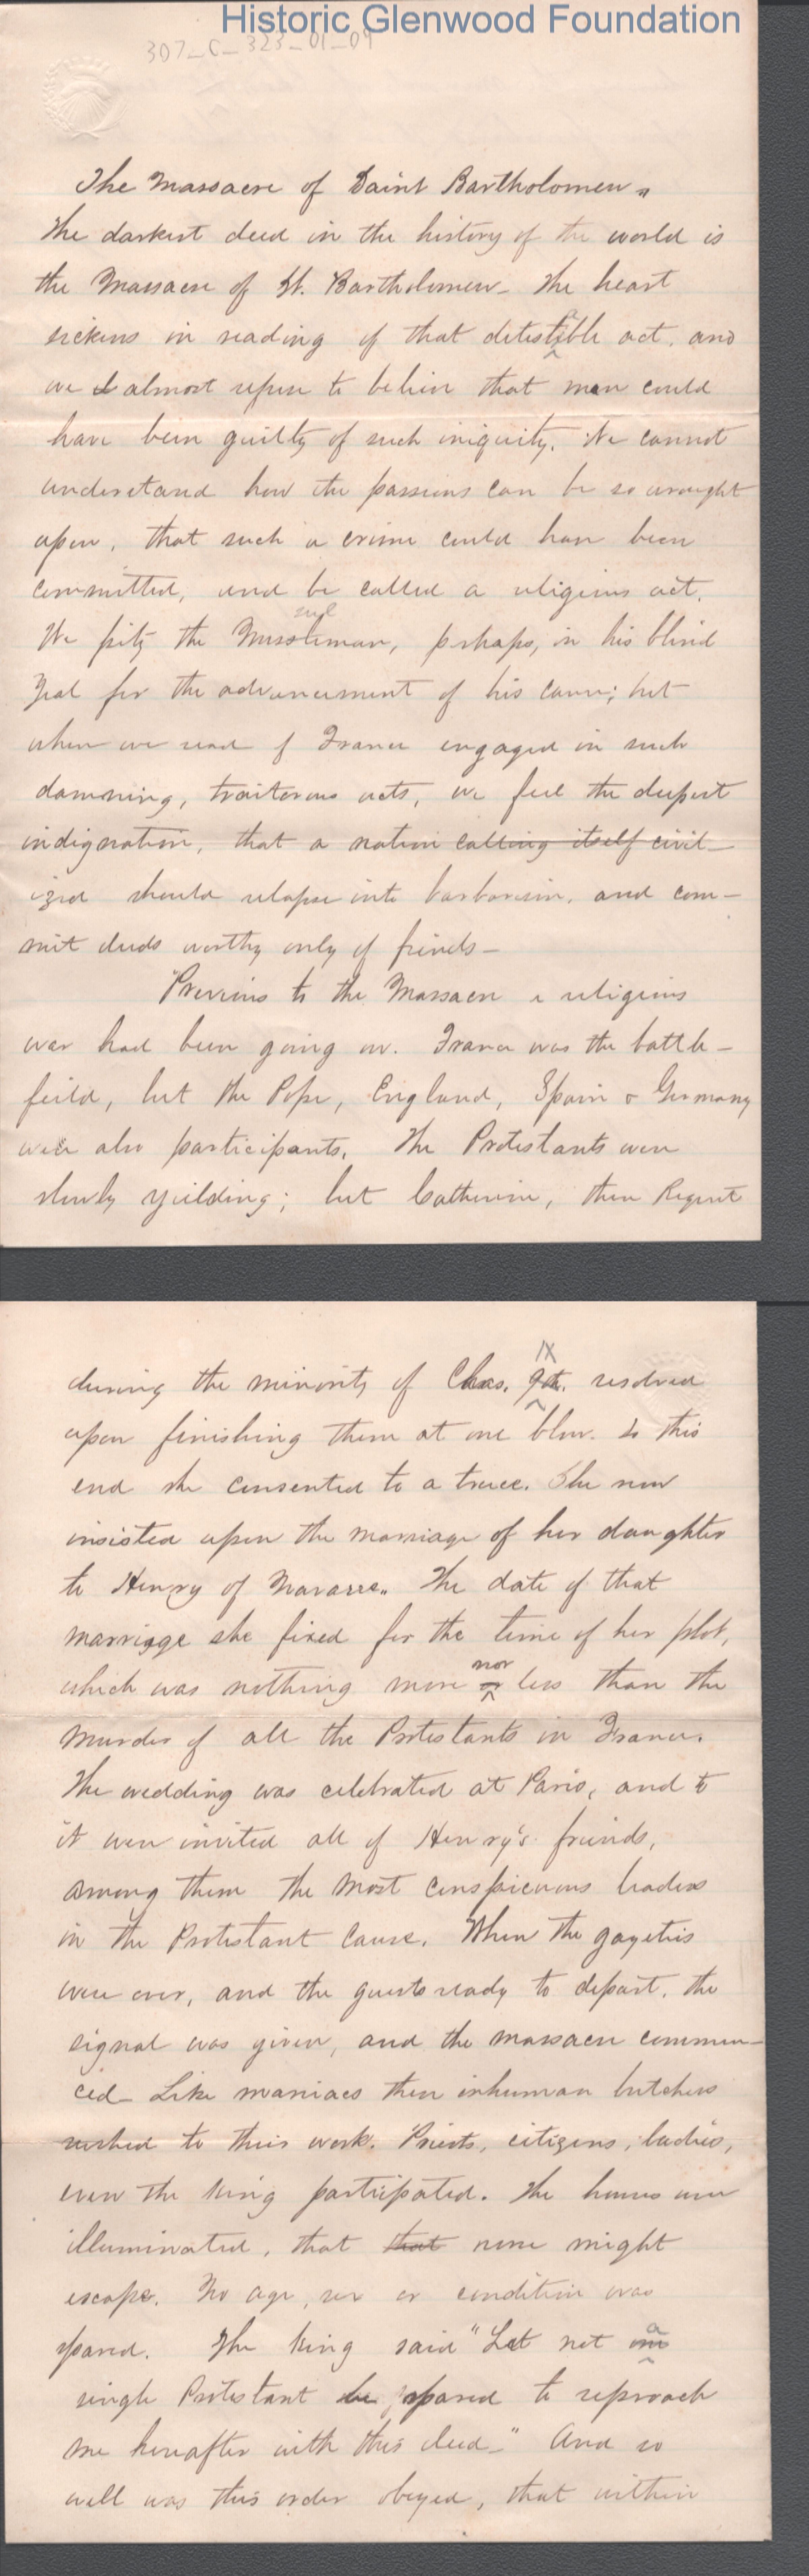 Historic Glenwood Foundation
307_C_323_01_09
The Massacre of Saint Bartholomew.
The darkest deed in the history of the world is
the Massacre of St. Bartholomew- The heart
sickens in reading of that detestable act, and
we almost refuse to believe that man could
have been guilty of such iniquity. We cannot
understand how the passions can be so wrought
upon, that such a crime could have been
committed, and be called a religious act.
sul
We pity the Mussleman, perhaps, in his blind
zeal for the advancement of his cause; but
when we read of France engaged in such
damning, traitorous acts, we feel the deepest
indignation, that a nation calling itself civil-
ized should relapse into barbarism, and com-
mit deeds worthy only of feinds-
Previous to the Massacre a religious
war had been going on. France was the battle-
feild, but the Pope, England, Spain & Germany
were also participants. The Protestants were
slowly yeilding; but Catherine, then Regent
IX
during the minority of Chas. 9th. resolved
upon finishing them at one blow. To this
end she consented to a truce. She now
insisted upon the marriage of her daughter
to Henry of Navarre. The date of that
marriage she fixed for the time of her plot,
nor
which was nothing more or less than the
murder of all the Protestants in France.
The wedding was celebrated at Paris, and to
it were invited all of Henry's freinds,
among them the most conspicuous leaders
in the Protestant Cause. When the gayeties
were over, and the guests ready to depart, the
signal was given, and the massacre commen-
ced- Like maniacs these inhuman butchers
rushed to their work. Priests, citizens, ladies,
even the King participated. The houses were
illuminated, that that none might
escape. No age, sex or condition was
spared. The King said "Let not a
single Protestant be spared to reproach
me hereafter with this deed-" And so
well was this order obeyed, that within